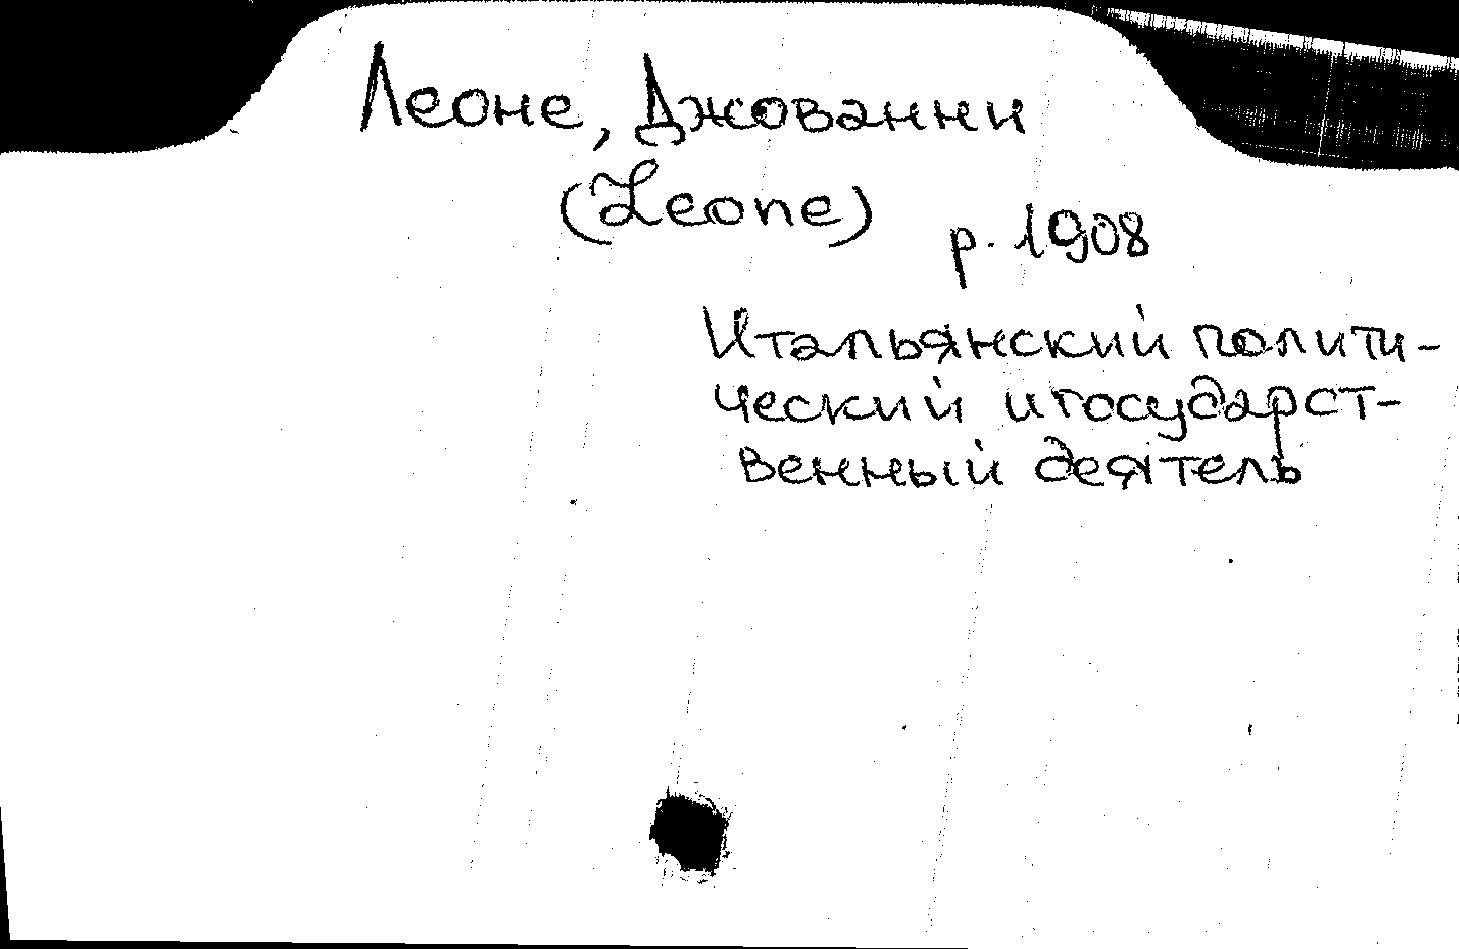 Леоне, Джованни
(Leone)
р. 1908
Итальянский полити-
ческий и государст-
венный деятель